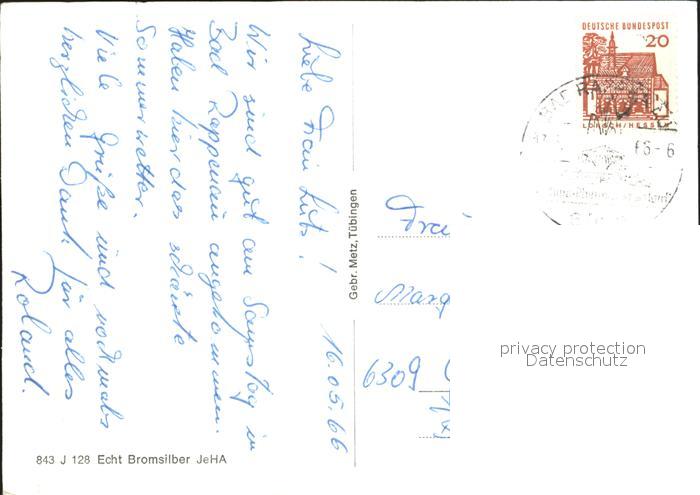 Liebe Frau Luts! 16.05.66
Wir sind gut am Samstag in
Bad Rappenau angekommen.
Haben hier das schönste
Sommerwetter.
Viele Grüße und nochmals
herzlichen Dank für alles
Roland.
Gebr. Metz, Tübingen
843 J 128 Echt Bromsilber JeHA
DEUTSCHE BUNDESPOST
20
LORSCH/HESSEN
BAD RA
66-6
Marg
6309
privacy protection
Datenschutz